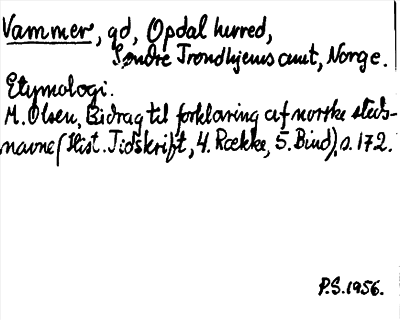 Vammer, gd, Opdal herred,
Søndre Trondhjems amt, Norge.
Etymologi.
M. Olsen, Bidrag til forklaring af norske steds-
navne (Hist. Tidskrift, 4. Række, 5. Bind), s. 172.
P.S. 1956.